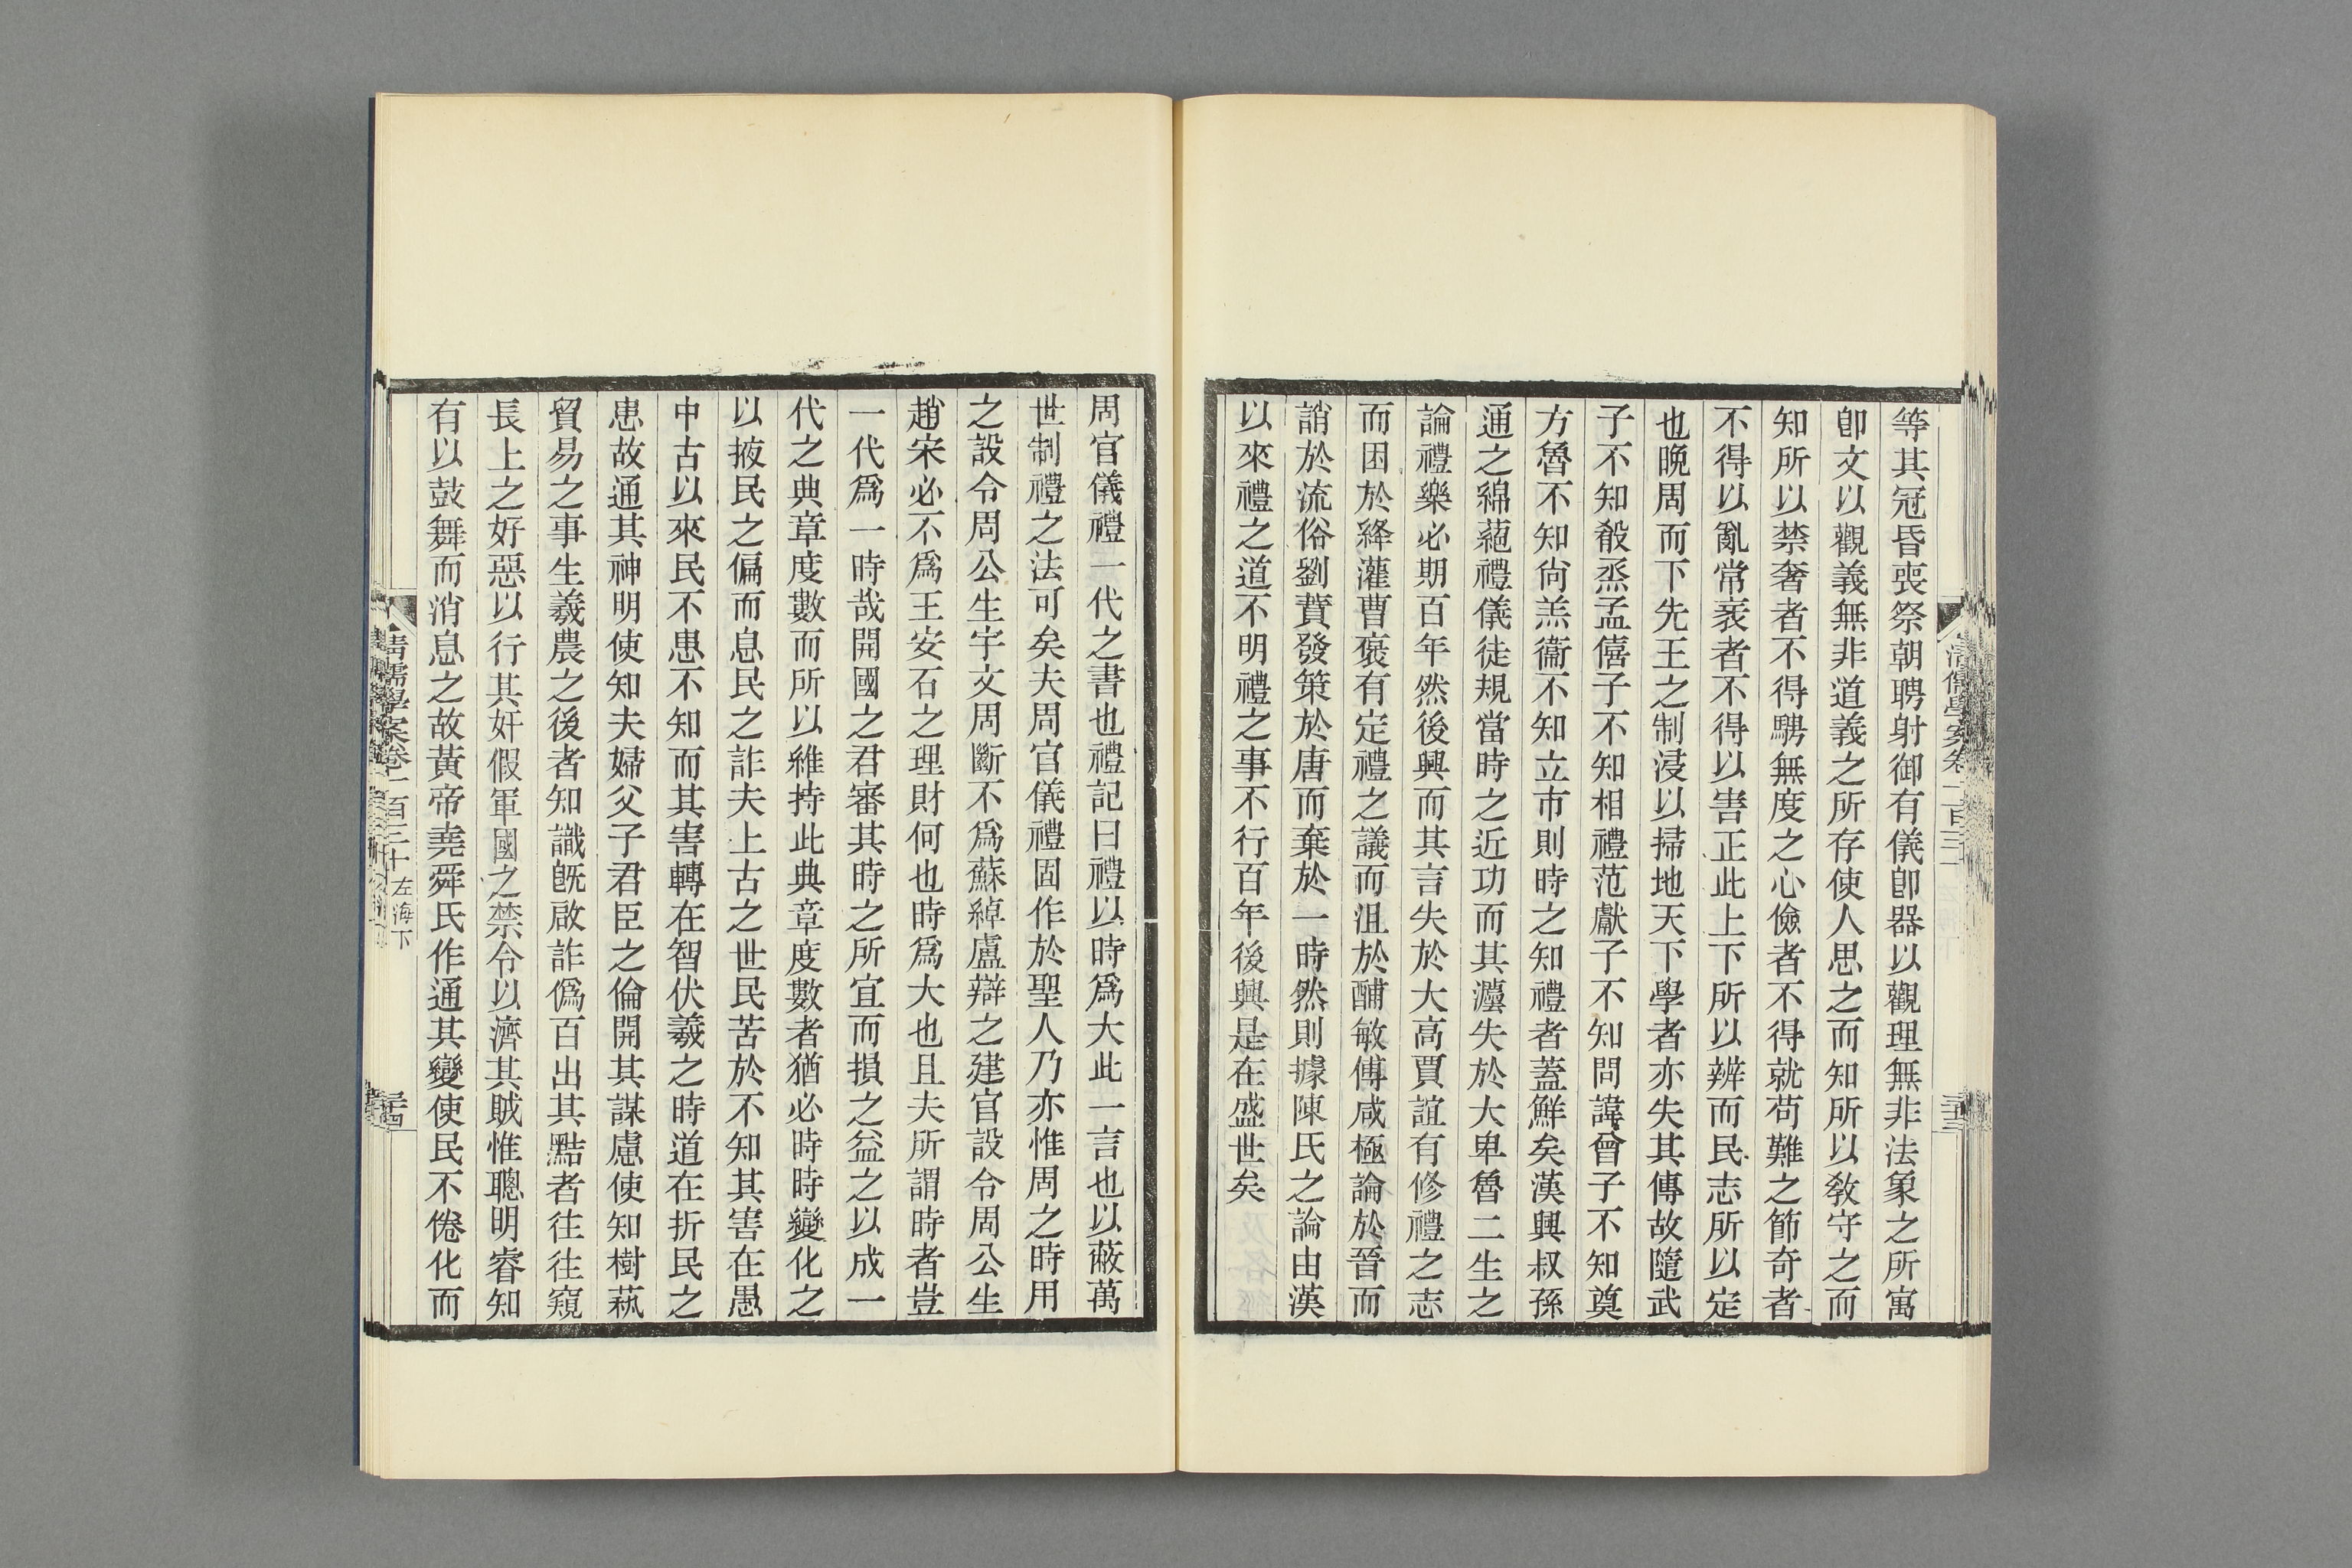 等其冠昏喪祭朝聘射御有儀卽器以觀理無非法象之所寓
卽文以觀義無非道義之所存使人思之而知所以敎守之而
知所以禁奢者不得騁無度之心儉者不得就苟難之節奇者
不得以亂常衺者不得以害正此上下所以辨而民志所以定
也晚周而下先王之制浸以掃地天下學者亦失其傳故隨武
子不知殽烝孟僖子不知相禮范獻子不知問諱曾子不知奠
方魯不知尙羔衞不知立市則時之知禮者蓋鮮矣漢興叔孫
通之綿蕝禮儀徒規當時之近功而其灋失於大卑魯二生之
論禮樂必期百年然後興而其言失於大高賈誼有修禮之志
而困於絳灌曹襃有定禮之議而沮於酺敏傅咸極論於晉而
誚於流俗劉蕡發策於唐而棄於一時然則據陳氏之論由漢
以來禮之道不明禮之事不行百年後興是在盛世矣
清儒學案卷一百三
三十三
周官儀禮一代之書也禮記曰禮以時爲大此一言也以蔽萬
世制禮之法可矣夫周官儀禮固作於聖人乃亦惟周之時用
之設令周公生宇文周斷不爲蘇綽盧辯之建官設令周公生
趙宋必不爲王安石之理財何也時爲大也且夫所謂時者豈
一代爲一時哉開國之君審其時之所宜而損之益之以成一
代之典章度數而所以維持此典章度數者猶必時時變化之
以掖民之偏而息民之詐夫上古之世民苦於不知其害在愚
中古以來民不患不知而其害轉在智伏羲之時道在折民之
患故通其神明使知夫婦父子君臣之倫開其謀慮使知樹蓺
貿易之事生羲農之後者知識旣啟詐僞百出其黠者往往窺
長上之好惡以行其奸假軍國之禁令以濟其賊惟聰明睿知
有以鼓舞而消息之故黃帝堯舜氏作通其變使民不倦化而
清儒學案卷一百三十 左海下
三十四